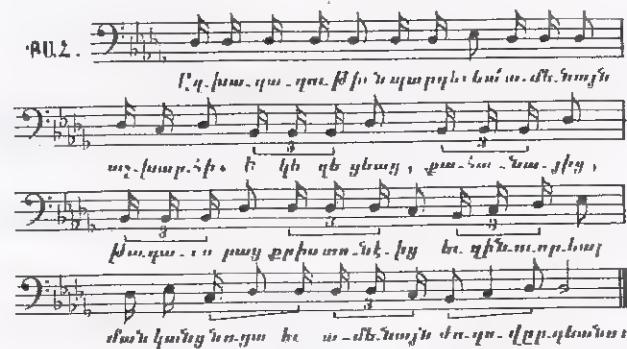 ՔԱՀ.
Ըզ-խա-ղա-ղու-թի ւնպարգեւ եա՛ ա-մե-նայն
աշ-խար-հի. ե կե ղե ցեաց, քա-հա-նա-յից,
թա-գա-ւո րաց քրիստո-նէ-ից եւ զին-ուո-րեալ
ման կանց նո-ցա եւ ա-մե-նայն ժո-ղո-վըր-դեանս